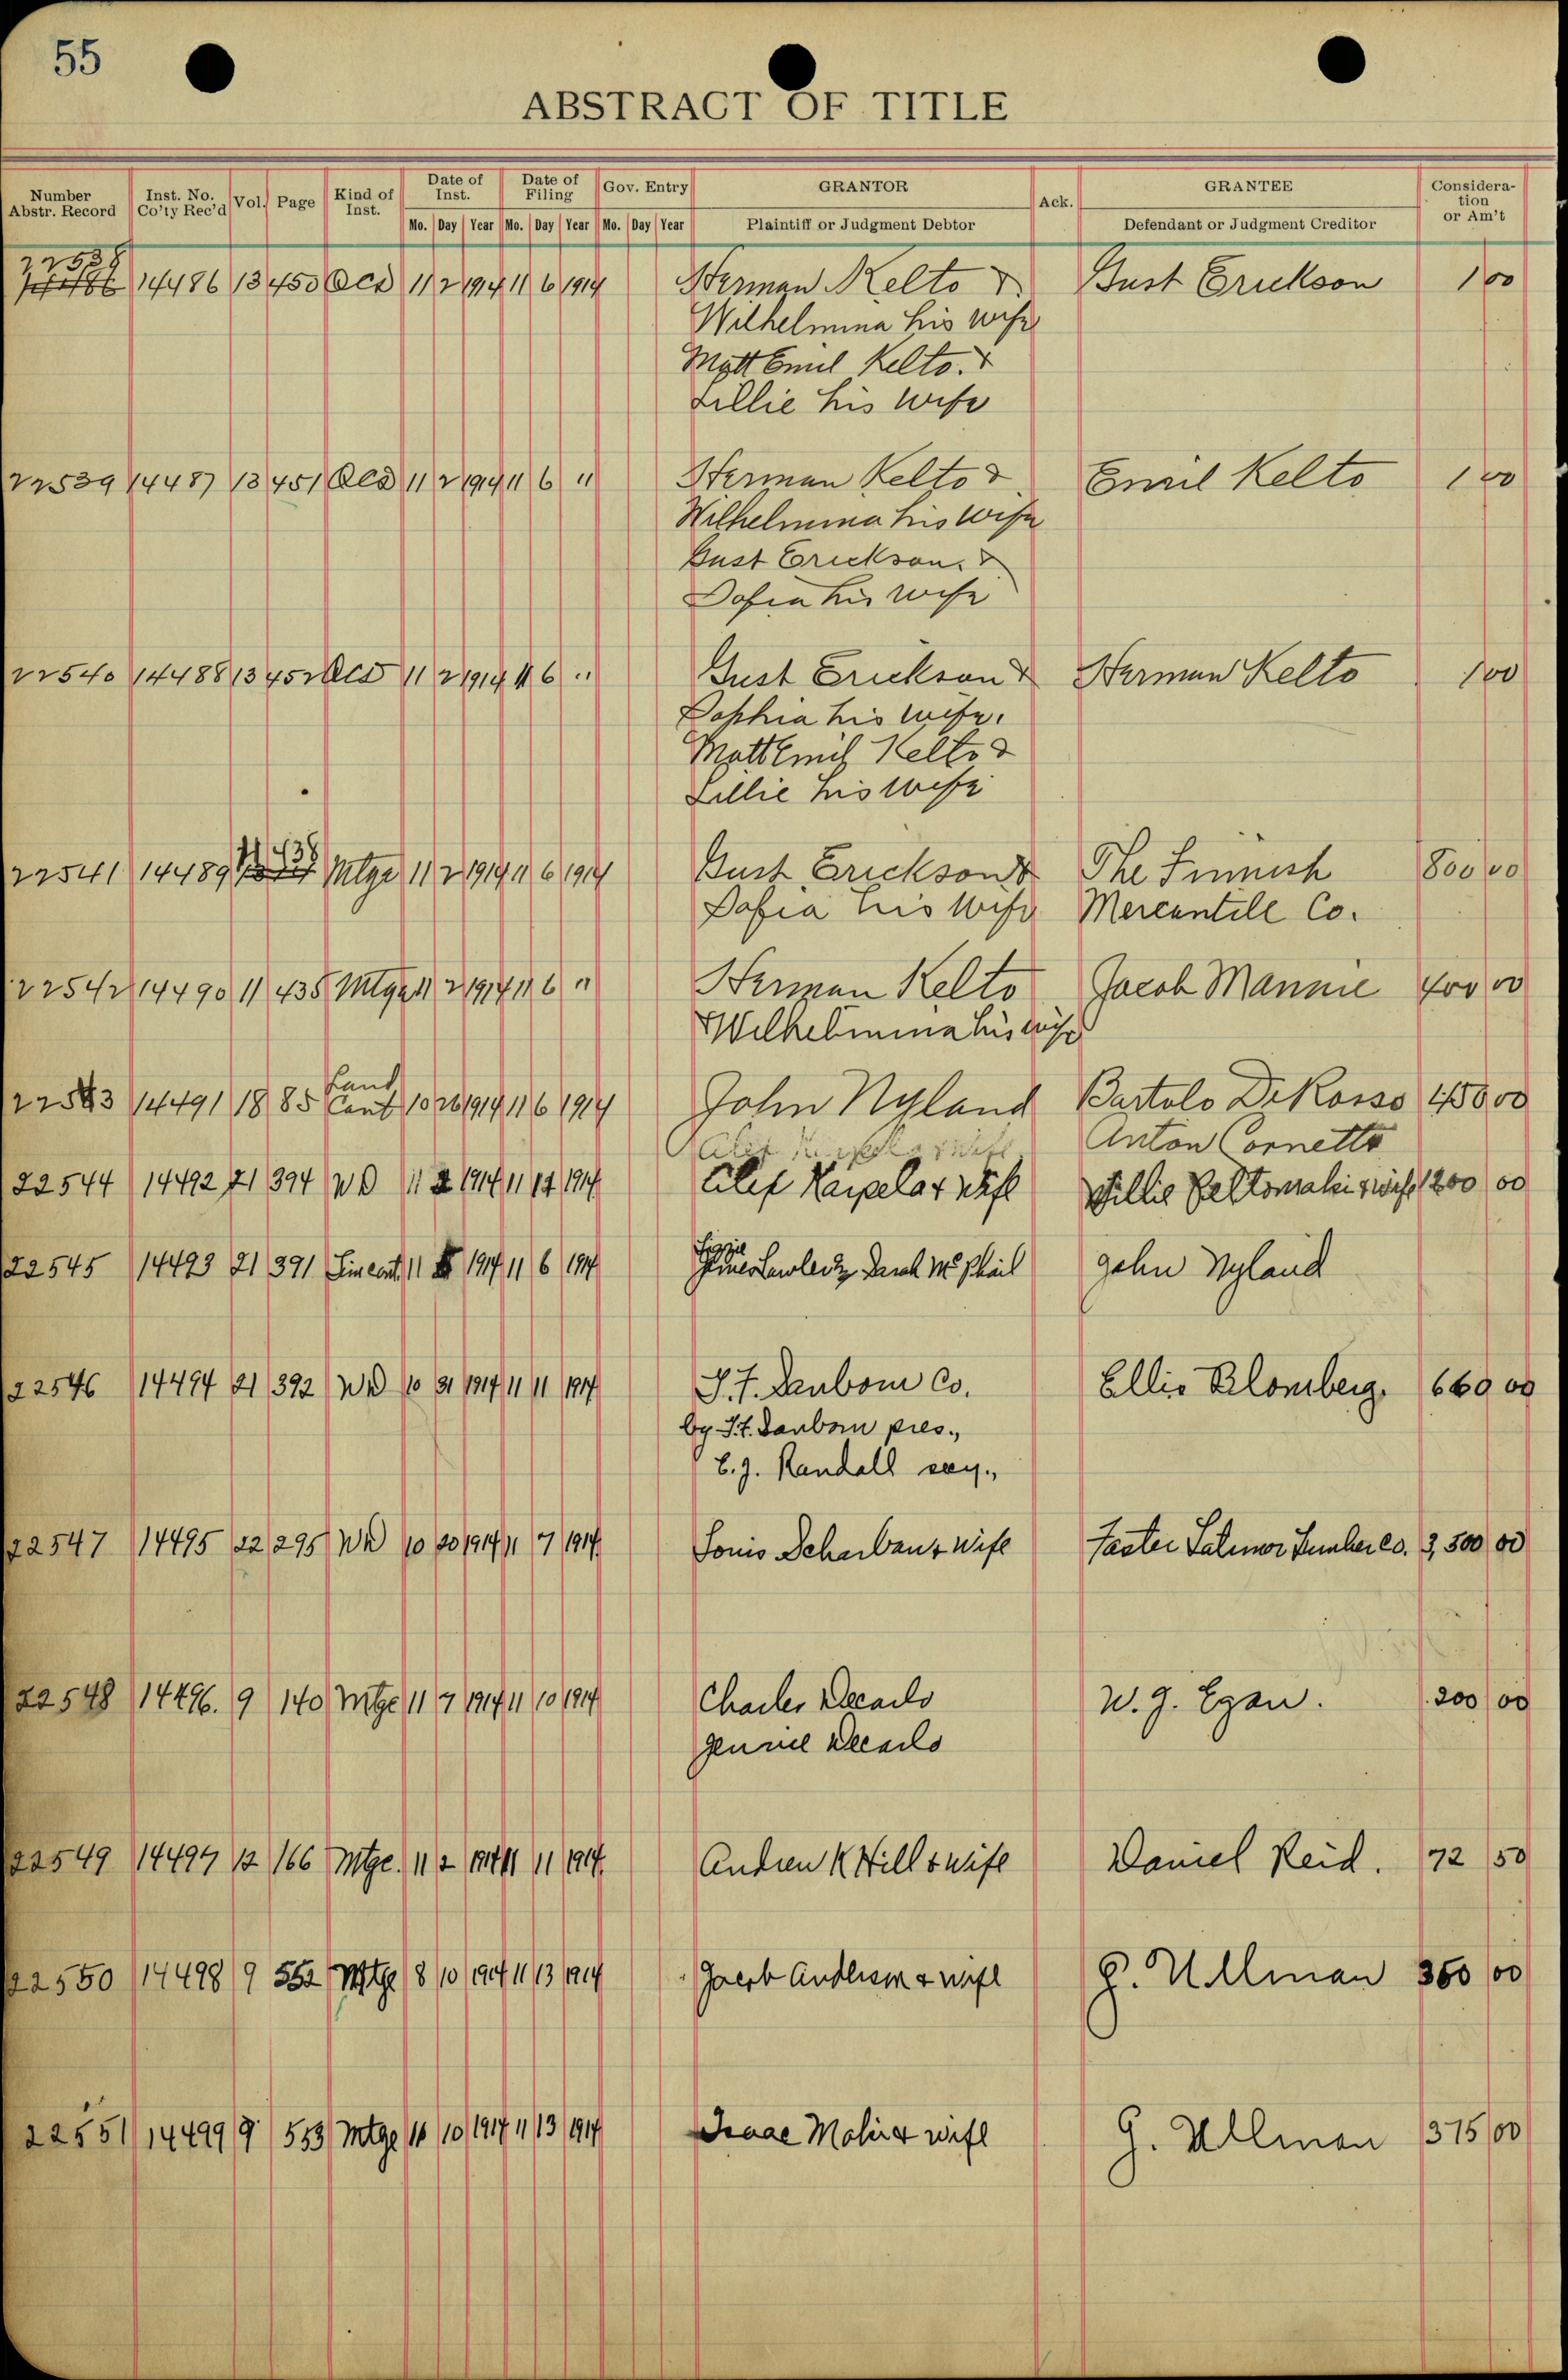 55
ABSTRACT OF TITLE
Number Abstr. Record Inst. No. Co'ty Rec'd Vol. Page Kind of Inst. Date of Inst. Date of Filing Gov. Entry GRANTOR Ack. GRANTEE Considera-tion or Am't
Mo. Day Year Mo. Day Year Mo. Day Year Plaintiff or Judgment Debtor Defendant or Judgment Creditor
22538
14486 13 450 QCD 11 2 1914 11 6 1914 Herman Kelto & Gust Erickson 1 00
Wilhelmina his wife
Matt Emil Kelto &
Lillie his wife
22539 14487 13 451 QCD 11 2 1914 11 6 " Herman Kelto & Emil Kelto 1 00
Wilhelmina his wife
Gust Erickson &
Sofia his wife
22540 14488 13 452 QCD 11 2 1914 11 6 " Gust Erickson & Herman Kelto 1 00
Sophia his wife.
Matt Emil Kelto &
Lillie his wife
22541 14489 Mtge 11 2 1914 11 6 1914 Gust Erickson & The Finnish 800 00
Sofia his wife Mercantile Co.
22542 14490 11 435 Mtge 11 2 1914 11 6 " Herman Kelto Jacob Mannie 400 00
& Wilhelmina his wife
22543 14491 18 85 Land Cont 10 26 1914 11 6 1914 John Nyland Bartolo DeRosso 00
Anton Cornetto
22544 14492 21 394 WD 11 2 1914 11 14 1914 Alef Karpela & wife Willie Peltomaki & wife 1200 00
22545 14493 21 391 11 1914 11 6 1914 McPhail John Nyland
22546 14494 21 392 WD 10 31 1914 11 11 1914 J. T. Sanborn Co. Ellis Blomberg. 660 00
by J. T. Sanborn pres.,
E. J. Randall secy.,
22547 14495 22 295 WD 10 20 1914 11 7 1914 Louis Scharbau & wife Foster Latimer Lumber Co. 3,500 00
22548 14496. 9 140 Mtge 11 7 1914 11 10 1914 Charles Decarlo W. J. Egan. 200 00
Jennie Decarlo
22549 14497 12 166 Mtge. 11 2 1914 11 11 1914. Andrew K Hill & wife Daniel Reid. 72 50
22550 14498 9 552 Mtge 8 10 1914 11 13 1914 Jacob Anderson & wife G. Ullman 350 00
22551 14499 9 553 Mtge 10 1914 11 13 1914 Isaac & wife G. Ullman 375 00